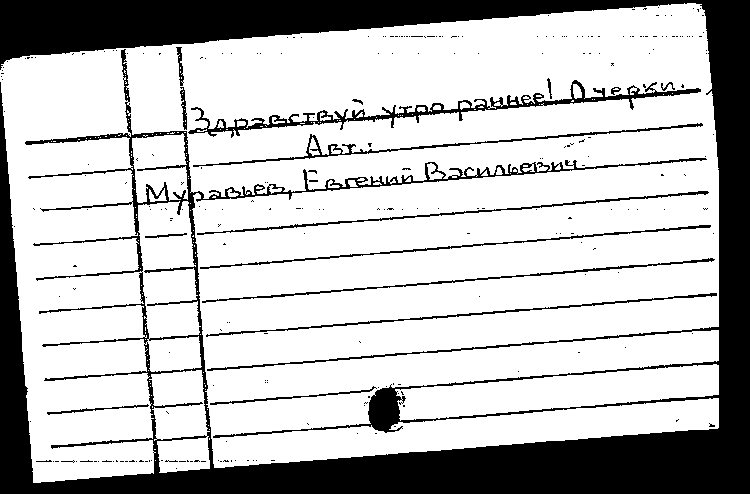 Здравствуй, утро раннее! Очерки.
Авт.:
Муравьев, Евгений Васильевич